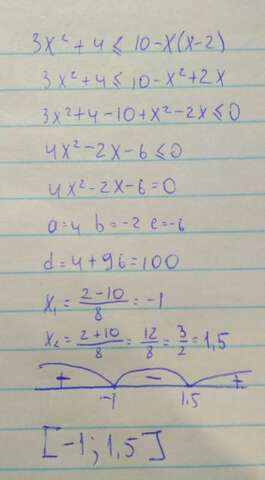 3x² + 4 ⩽ 10 - x(x-2)
3x² + 4 ⩽ 10 - x² + 2x
3x² + 4 - 10 + x² - 2x ⩽ 0
4x² - 2x - 6 ⩽ 0
4x² - 2x - 6 = 0
a=4 b=-2 c=-6
d=4+96=100
x₁ = (2-10)/8 = -1
x₂ = (2+10)/8 = 12/8 = 3/2 = 1,5
+ - +
-1 1,5
[-1; 1,5]